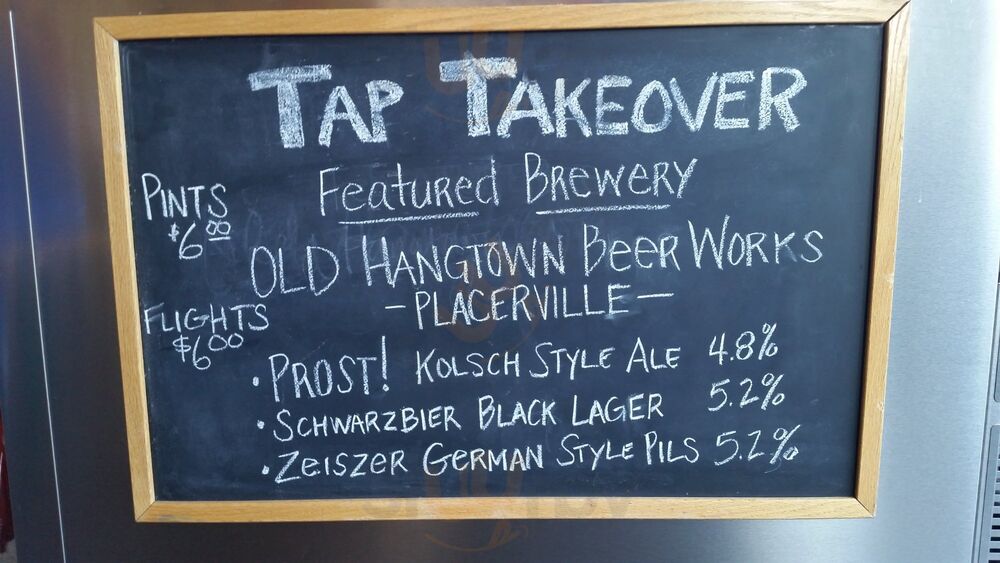 TAP TAKEOVER
Featured Brewery
PINTS
$6.00
OLD HANGTOWN Beer WORKS
- PLACERVILLE -
FLIGHTS
$6.00
• PROST! KOLSCH STYLE ALE 4.8%
• SCHWARZBIER BLACK LAGER 5.2%
• ZEISZER GERMAN STYLE PILS 5.2%